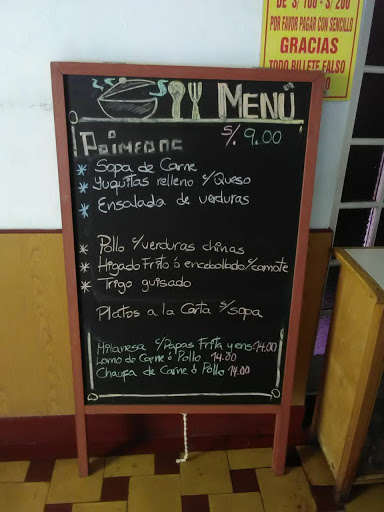 DE S/ 100 - S/ 200
POR FAVOR PAGAR CON SENCILLO
GRACIAS
TODO BILLETE FALSO
MENÚ
S/. 9.00
* Sopa de Carne
* Yuquitas relleno c/Queso
* Ensalada de verduras
* Pollo c/verduras chinas
* Higado Frito ó encebollado/camote
* Trigo guisado
Platos a la Carta s/sopa
Milanesa c/Papas Frita y ens. 14.00
Lomo de Carne ó Pollo 14.00
Chaufa de Carne ó Pollo 14.00